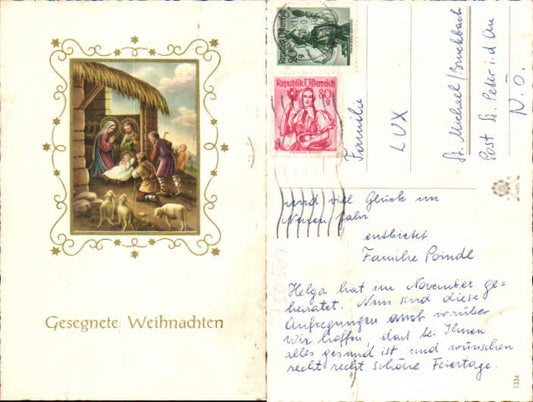 Gesegnete Weihnachten
Republik Österreich
80
Familie
LUX
St. Michael/Bruckbach
Post St. Peter i. d. Au
N.Ö.
und viel Glück im
Neuen Jahr
entbietet
Familie
Helga hat im November ge-
heiratet. Nun sind diese
Aufregungen auch vorüber.
Wir hoffen, daß bei Ihnen
alles gesund ist und wünschen
recht recht schöne Feiertage.
1334